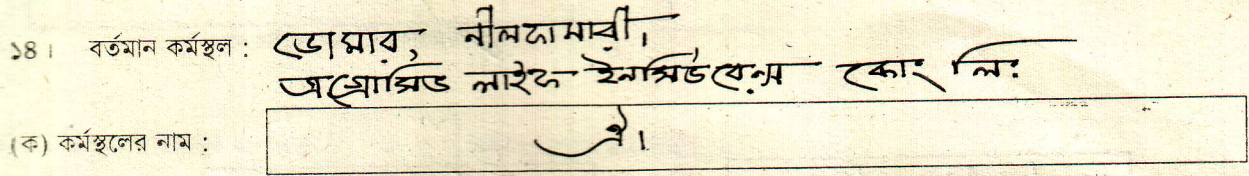 ১৪। বর্তমান কর্মস্থল : ডোমার, নীলফামারী।
প্রগ্রেসিভ লাইফ ইনসিওরেন্স কোং লিঃ
(ক) কর্মস্থলের নাম : ঐ।